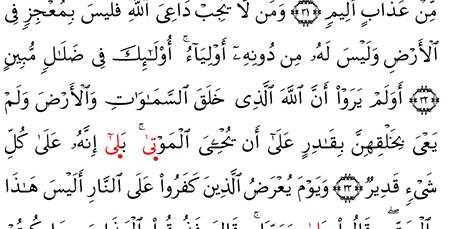 مِّنْ عَذَابٍ أَلِيمٍ ۝٣١ وَمَن لَّا يُجِبْ دَاعِىَ ٱللَّهِ فَلَيْسَ بِمُعْجِزٍ فِى
ٱلْأَرْضِ وَلَيْسَ لَهُۥ مِن دُونِهِۦٓ أَوْلِيَآءُ ۚ أُو۟لَـٰٓئِكَ فِى ضَلَـٰلٍ مُّبِينٍ
۝٣٢ أَوَلَمْ يَرَوْا۟ أَنَّ ٱللَّهَ ٱلَّذِى خَلَقَ ٱلسَّمَـٰوَٰتِ وَٱلْأَرْضَ وَلَمْ
يَعْىَ بِخَلْقِهِنَّ بِقَـٰدِرٍ عَلَىٰٓ أَن يُحْـِۧىَ ٱلْمَوْتَىٰ ۚ بَلَىٰٓ إِنَّهُۥ عَلَىٰ كُلِّ
شَىْءٍ قَدِيرٌ ۝٣٣ وَيَوْمَ يُعْرَضُ ٱلَّذِينَ كَفَرُوا۟ عَلَى ٱلنَّارِ أَلَيْسَ هَـٰذَا